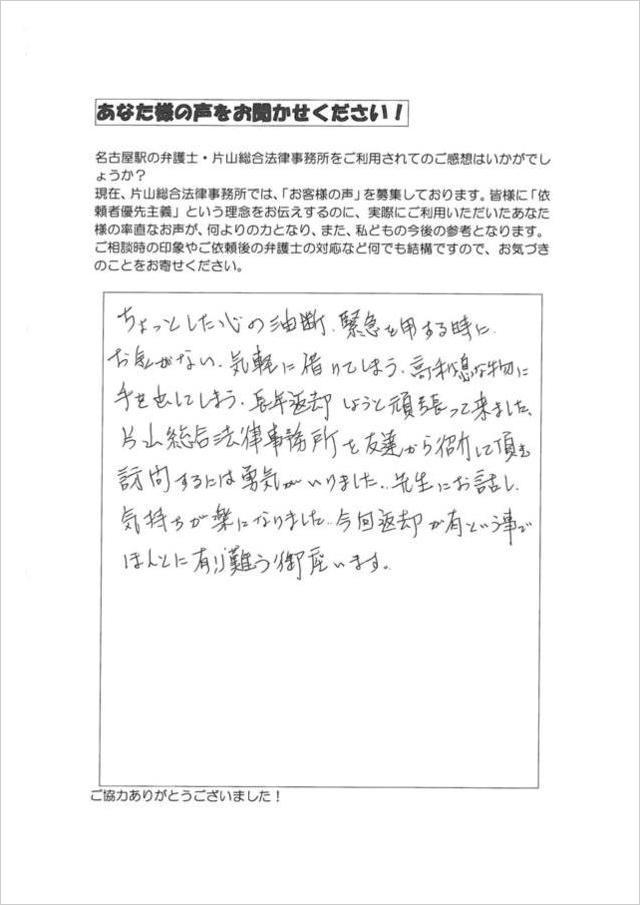 あなた様の声をお聞かせください！
名古屋駅の弁護士・片山総合法律事務所をご利用されてのご感想はいかがでし
ょうか？
現在、片山総合法律事務所では、「お客様の声」を募集しております。皆様に「依
頼者優先主義」という理念をお伝えするのに、実際にご利用いただいたあなた
様の率直なお声が、何よりの力となり、また、私どもの今後の参考となります。
ご相談時の印象やご依頼後の弁護士の対応など何でも結構ですので、お気づき
のことをお寄せください。
ちょっとした心の油断、緊急を用する時に
お金がない、気軽に借りてしまう、高利息な物に
手を出してしまう、長年返却しようと頑張って来ました、
片山総合法律事務所を友達から紹介して頂き
訪問するには勇気がいりました。先生にお話し
気持ちが楽になりました。今回返却が有という事で
ほんとに有り難う御座います。
ご協力ありがとうございました！